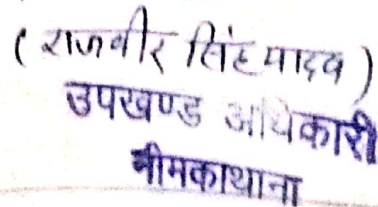 ( राजवीर सिंह यादव )
उपखण्ड अधिकारी
नीमकाथाना